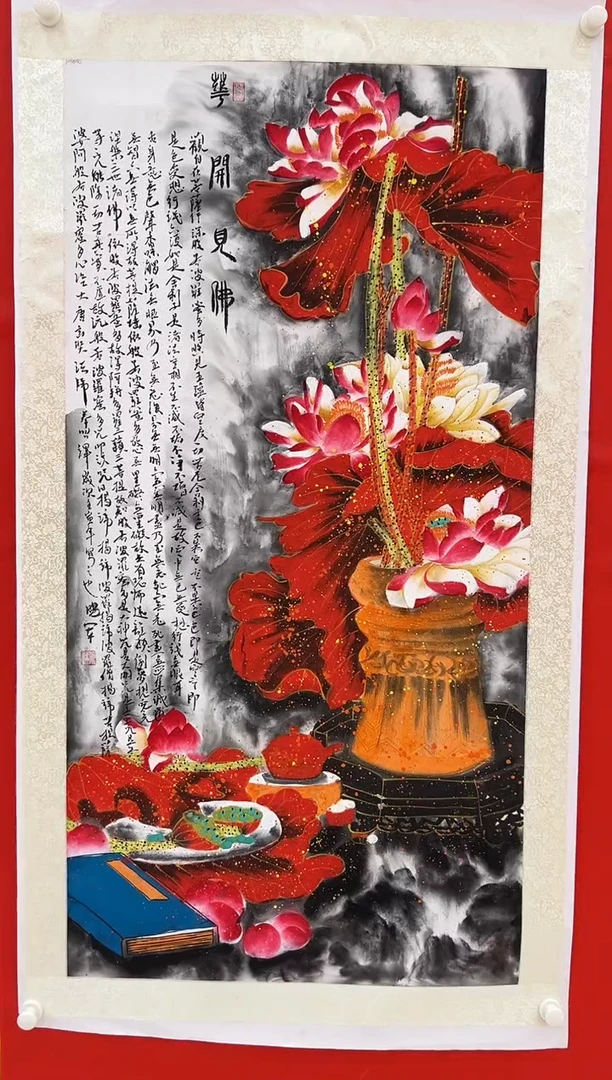 華開見佛
觀自在菩薩行深般若波羅蜜多時照見五蘊皆空度一切苦厄舍利子色不異空空不異色色即是空空即
是色受想行識亦復如是舍利子是諸法空相不生不滅不垢不淨不增不減是故空中無色無受想行識無眼耳
舌身意無色聲香味觸法無眼界乃至無意識界無無明亦無無明盡乃至無老死亦無老死盡無苦集滅道
無智亦無得以無所得故菩提薩埵依般若波羅蜜多故心無罣礙無罣礙故無有恐怖遠離顛倒夢想究竟
涅槃三世諸佛依般若波羅蜜多故得阿耨多羅三藐三菩提故知般若波羅蜜多是大神咒是大明咒是無上咒是無
等等咒能除一切苦真實不虛故說般若波羅蜜多咒即說咒曰揭諦揭諦波羅揭諦波羅僧揭諦菩提薩
婆訶般若波羅蜜多心經大唐玄奘法師奉詔譯歲次壬寅年寫之也